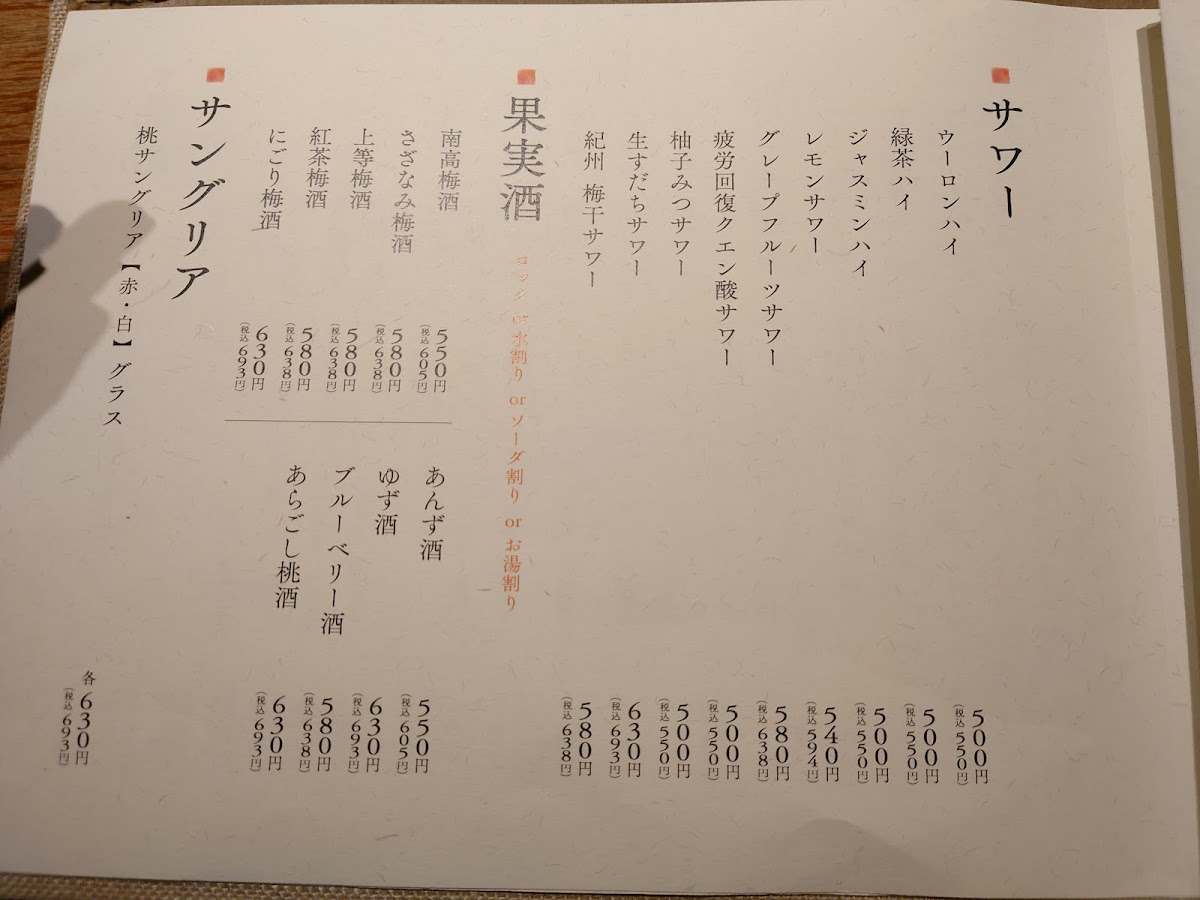 サワー
ウーロンハイ
500円
(税込550円)
緑茶ハイ
500円
(税込550円)
ジャスミンハイ
500円
(税込550円)
レモンサワー
540円
(税込594円)
グレープフルーツサワー
580円
(税込638円)
疲労回復クエン酸サワー
500円
(税込550円)
柚子みつサワー
500円
(税込550円)
生すだちサワー
630円
(税込693円)
紀州 梅干サワー
580円
(税込638円)
果実酒 ロック or 水割り or ソーダ割り or お湯割り
南高梅酒
550円
(税込605円)
さざなみ梅酒
580円
(税込638円)
上等梅酒
580円
(税込638円)
紅茶梅酒
580円
(税込638円)
にごり梅酒
630円
(税込693円)
あんず酒
550円
(税込605円)
ゆず酒
630円
(税込693円)
ブルーベリー酒
580円
(税込638円)
あらごし桃酒
630円
(税込693円)
サングリア
桃サングリア【赤・白】グラス
各630円
(税込693円)